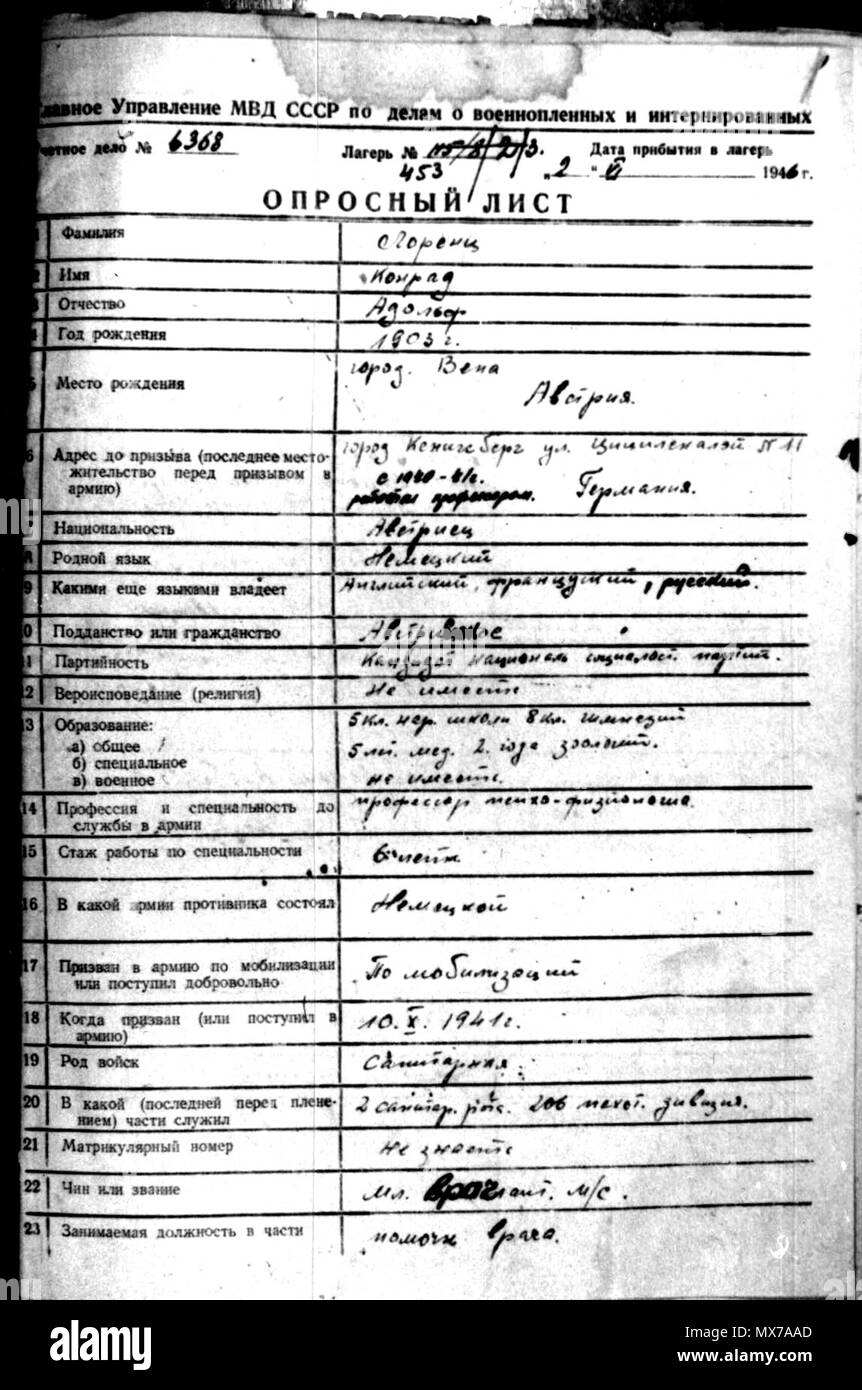 Главное Управление МВД СССР по делам о военнопленных и интернированных
четное дело № 6368
Лагерь № 115/8/2/3.
Дата прибытия в лагерь
453
"2" VI 1946 г.
ОПРОСНЫЙ ЛИСТ
1 Фамилия Лоренц
2 Имя Конрад
3 Отчество Адольф
4 Год рождения 1903 г.
5 Место рождения город. Вена
Австрия.
6 Адрес до призыва (последнее место- город Кенигсберг ул. № 11
жительство перед призывом в с 1940-41г.
армию) работал профессором. Германия.
Национальность Австриец
8 Родной язык Немецкий
9 Какими еще языками владеет Английский, французский, русский.
10 Подданство или гражданство Австрийское
11 Партийность Кандидат националь социалист. партии.
12 Вероисповедание (религия) не имеет
13 Образование: 5 кл. нар. школы 8 кл. гимназий
а) общее
б) специальное 5 лет. мед. 2. года зоологии.
в) военное не имеет.
14 Профессия и специальность до профессор психо-физиологии.
службы в армии
15 Стаж работы по специальности 6 лет
16 В какой армии противника состоял Немецкой
17 Призван в армию по мобилизации По мобилизаций
или поступил добровольно
18 Когда призван (или поступил в 10. X. 1941 г.
армию)
19 Род войск Санитарная.
20 В какой (последней перед плене- 2 санитар. рота. 206 пехот. дивизия.
нием) части служил
21 Матрикулярный номер не знает
22 Чин или звание мл. врач м/с.
23 Занимаемая должность в части врача.
alamy
alamy
Image ID: MX7AAD
www.alamy.com